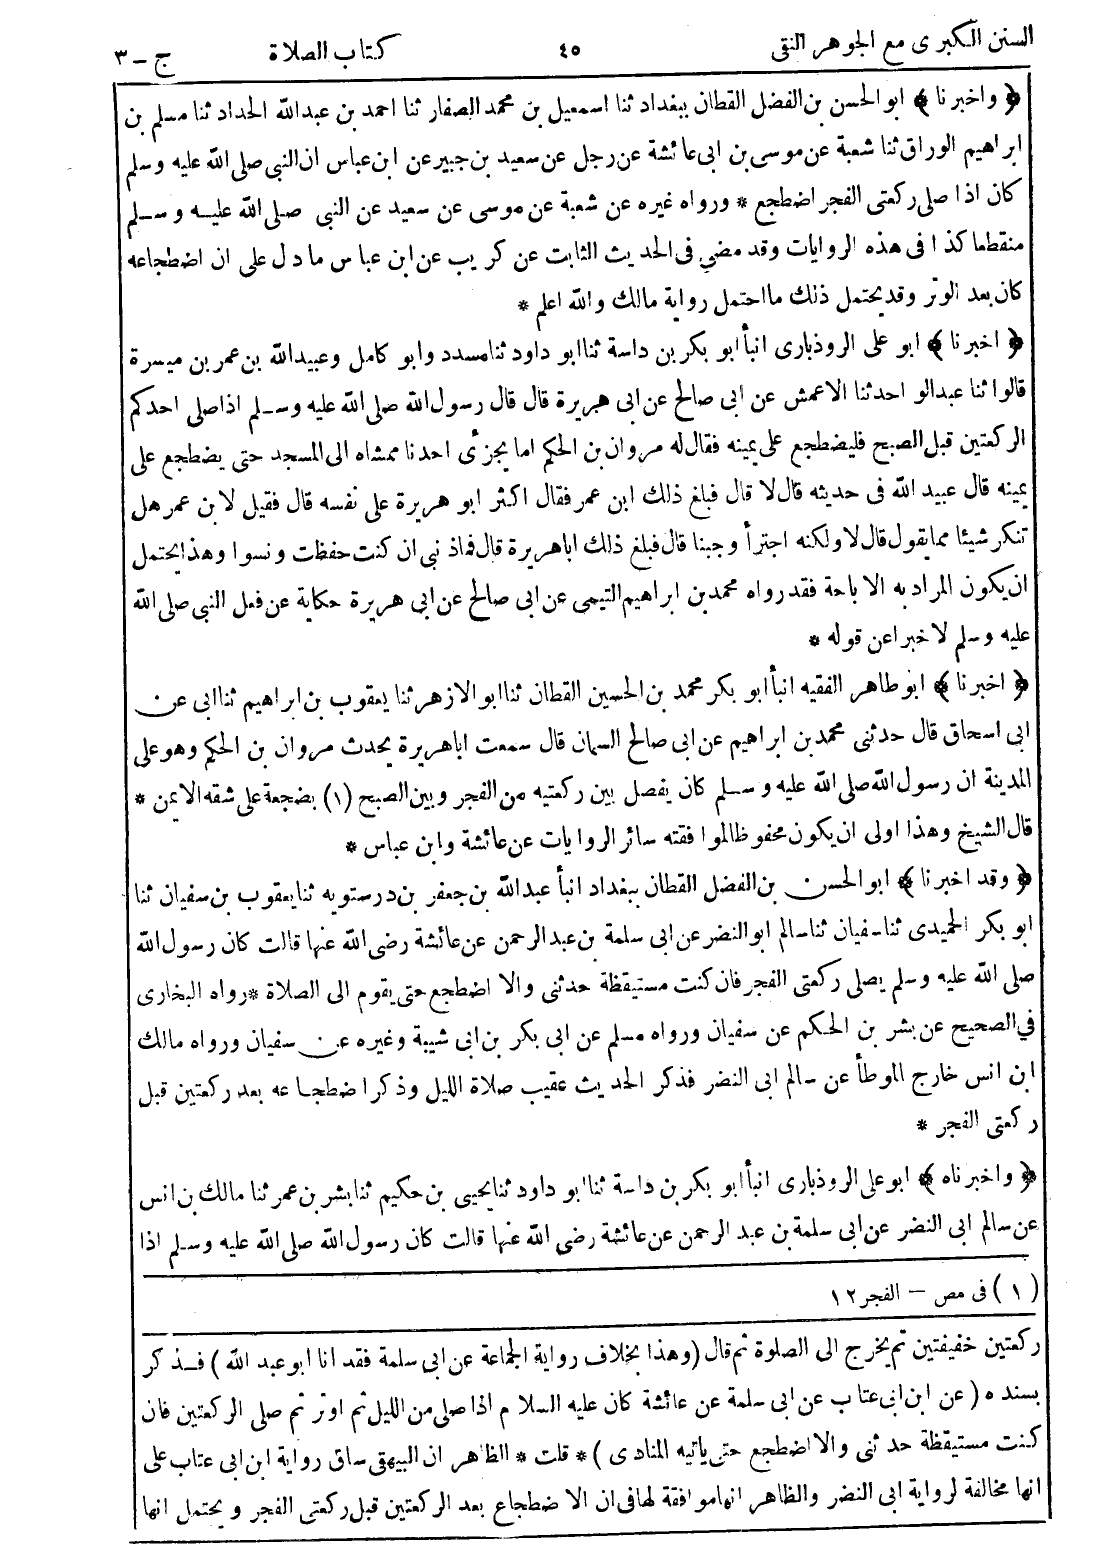 السنن الكبرى مع الجوهر النقى ٤٥ كتاب الصلاة ج – ٣
﴿ واخبرنا ﴾ ابو الحسن بن الفضل القطان ببغداد ثنا اسمعيل بن محمد الصفار ثنا احمد بن عبدالله الحداد ثنا مسلم بن
ابراهيم الوراق ثنا شعبة عن موسى بن ابى عائشة عن رجل عن سعيد بن جبير عن ابن عباس ان النبي صلى الله عليه وسلم
كان اذا صلى ركعتى الفجر اضطجع * ورواه غيره عن شعبة عن موسى عن سعيد عن النبي صلى الله عليه وسلم
منقطعا كذا فى هذه الروايات وقد مضى فى الحديث الثابت عن كريب عن ابن عباس ما دل على ان اضطجاعه
كان بعد الوتر وقد يحتمل ذلك ما احتمل رواية مالك والله اعلم *
﴿ اخبرنا ﴾ ابو على الروذبارى انبأ ابو بكر بن داسة ثنا ابو داود ثنا مسدد وابو كامل وعبيدالله بن عمر بن ميسرة
قالوا ثنا عبد الواحد ثنا الاعمش عن ابى صالح عن ابى هريرة قال قال رسول الله صلى الله عليه وسلم اذا صلى احدكم
الركعتين قبل الصبح فليضطجع على يمينه فقال له مروان بن الحكم اما يجزئ احدنا ممشاه الى المسجد حتى يضطجع على
يمينه قال عبيد الله فى حديثه قال لا قال فبلغ ذلك ابن عمر فقال اكثر ابو هريرة على نفسه قال فقيل لابن عمر هل
تنكر شيئا مما يقول قال لا ولكنه اجترأ وجبنا قال فبلغ ذلك ابا هريرة قال فما ذنبى ان كنت حفظت ونسوا وهذا يحتمل
ان يكون المراد به الاباحة فقد رواه محمد بن ابراهيم التيمى عن ابى صالح عن ابى هريرة حكاية عن فعل النبي صلى الله
عليه وسلم لا خبرا عن قوله *
﴿ اخبرنا ﴾ ابو طاهر الفقيه انبأ ابو بكر محمد بن الحسين القطان ثنا ابو الازهر ثنا يعقوب بن ابراهيم ثنا ابى عن
ابى اسحاق قال حدثنى محمد بن ابراهيم عن ابى صالح السمان قال سمعت ابا هريرة يحدث مروان بن الحكم وهو على
المدينة ان رسول الله صلى الله عليه وسلم كان يفصل بين ركعتيه من الفجر وبين الصبح (١) بضجعة على شقه الايمن *
قال الشيخ وهذا اولى ان يكون محفوظا لموافقته سائر الروايات عن عائشة وابن عباس *
﴿ وقد اخبرنا ﴾ ابو الحسن بن الفضل القطان ببغداد انبأ عبدالله بن جعفر بن درستويه ثنا يعقوب بن سفيان ثنا
ابو بكر الحميدى ثنا سفيان ثنا سالم ابو النضر عن ابى سلمة بن عبد الرحمن عن عائشة رضى الله عنها قالت كان رسول الله
صلى الله عليه وسلم يصلى ركعتى الفجر فان كنت مستيقظة حدثنى والا اضطجع حتى يقوم الى الصلاة * رواه البخارى
فى الصحيح عن بشر بن الحكم عن سفيان ورواه مسلم عن ابى بكر بن ابى شيبة وغيره عن سفيان ورواه مالك
ابن انس خارج الموطأ عن سالم ابى النضر فذكر الحديث عقيب صلاة الليل وذكر اضطجاعه بعد ركعتين قبل
ركعتى الفجر *
﴿ واخبرناه ﴾ ابو على الروذبارى انبأ ابو بكر بن داسة ثنا ابو داود ثنا يحيى بن حكيم ثنا بشر بن عمر ثنا مالك بن انس
عن سالم ابى النضر عن ابى سلمة بن عبد الرحمن عن عائشة رضى الله عنها قالت كان رسول الله صلى الله عليه وسلم اذا
(١) فى مص – الفجر ١٢
ركعتين خفيفتين ثم يخرج الى الصلوة ثم قال (وهذا بخلاف رواية الجماعة عن ابى سلمة فقد انا ابو عبد الله) فذكر
بسنده (عن ابن ابى عتاب عن ابى سلمة عن عائشة كان عليه السلام اذا صلى من الليل ثم اوتر ثم صلى الركعتين فان
كنت مستيقظة حدثنى والا اضطجع حتى ياتيه المنادى) * قلت * الظاهر ان البيهقى ساق رواية ابن ابى عتاب على
انها مخالفة لرواية ابى النضر والظاهر انها موافقة لها فى ان الاضطجاع بعد الركعتين قبل ركعتى الفجر ويحتمل انها